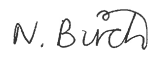 N. Birch